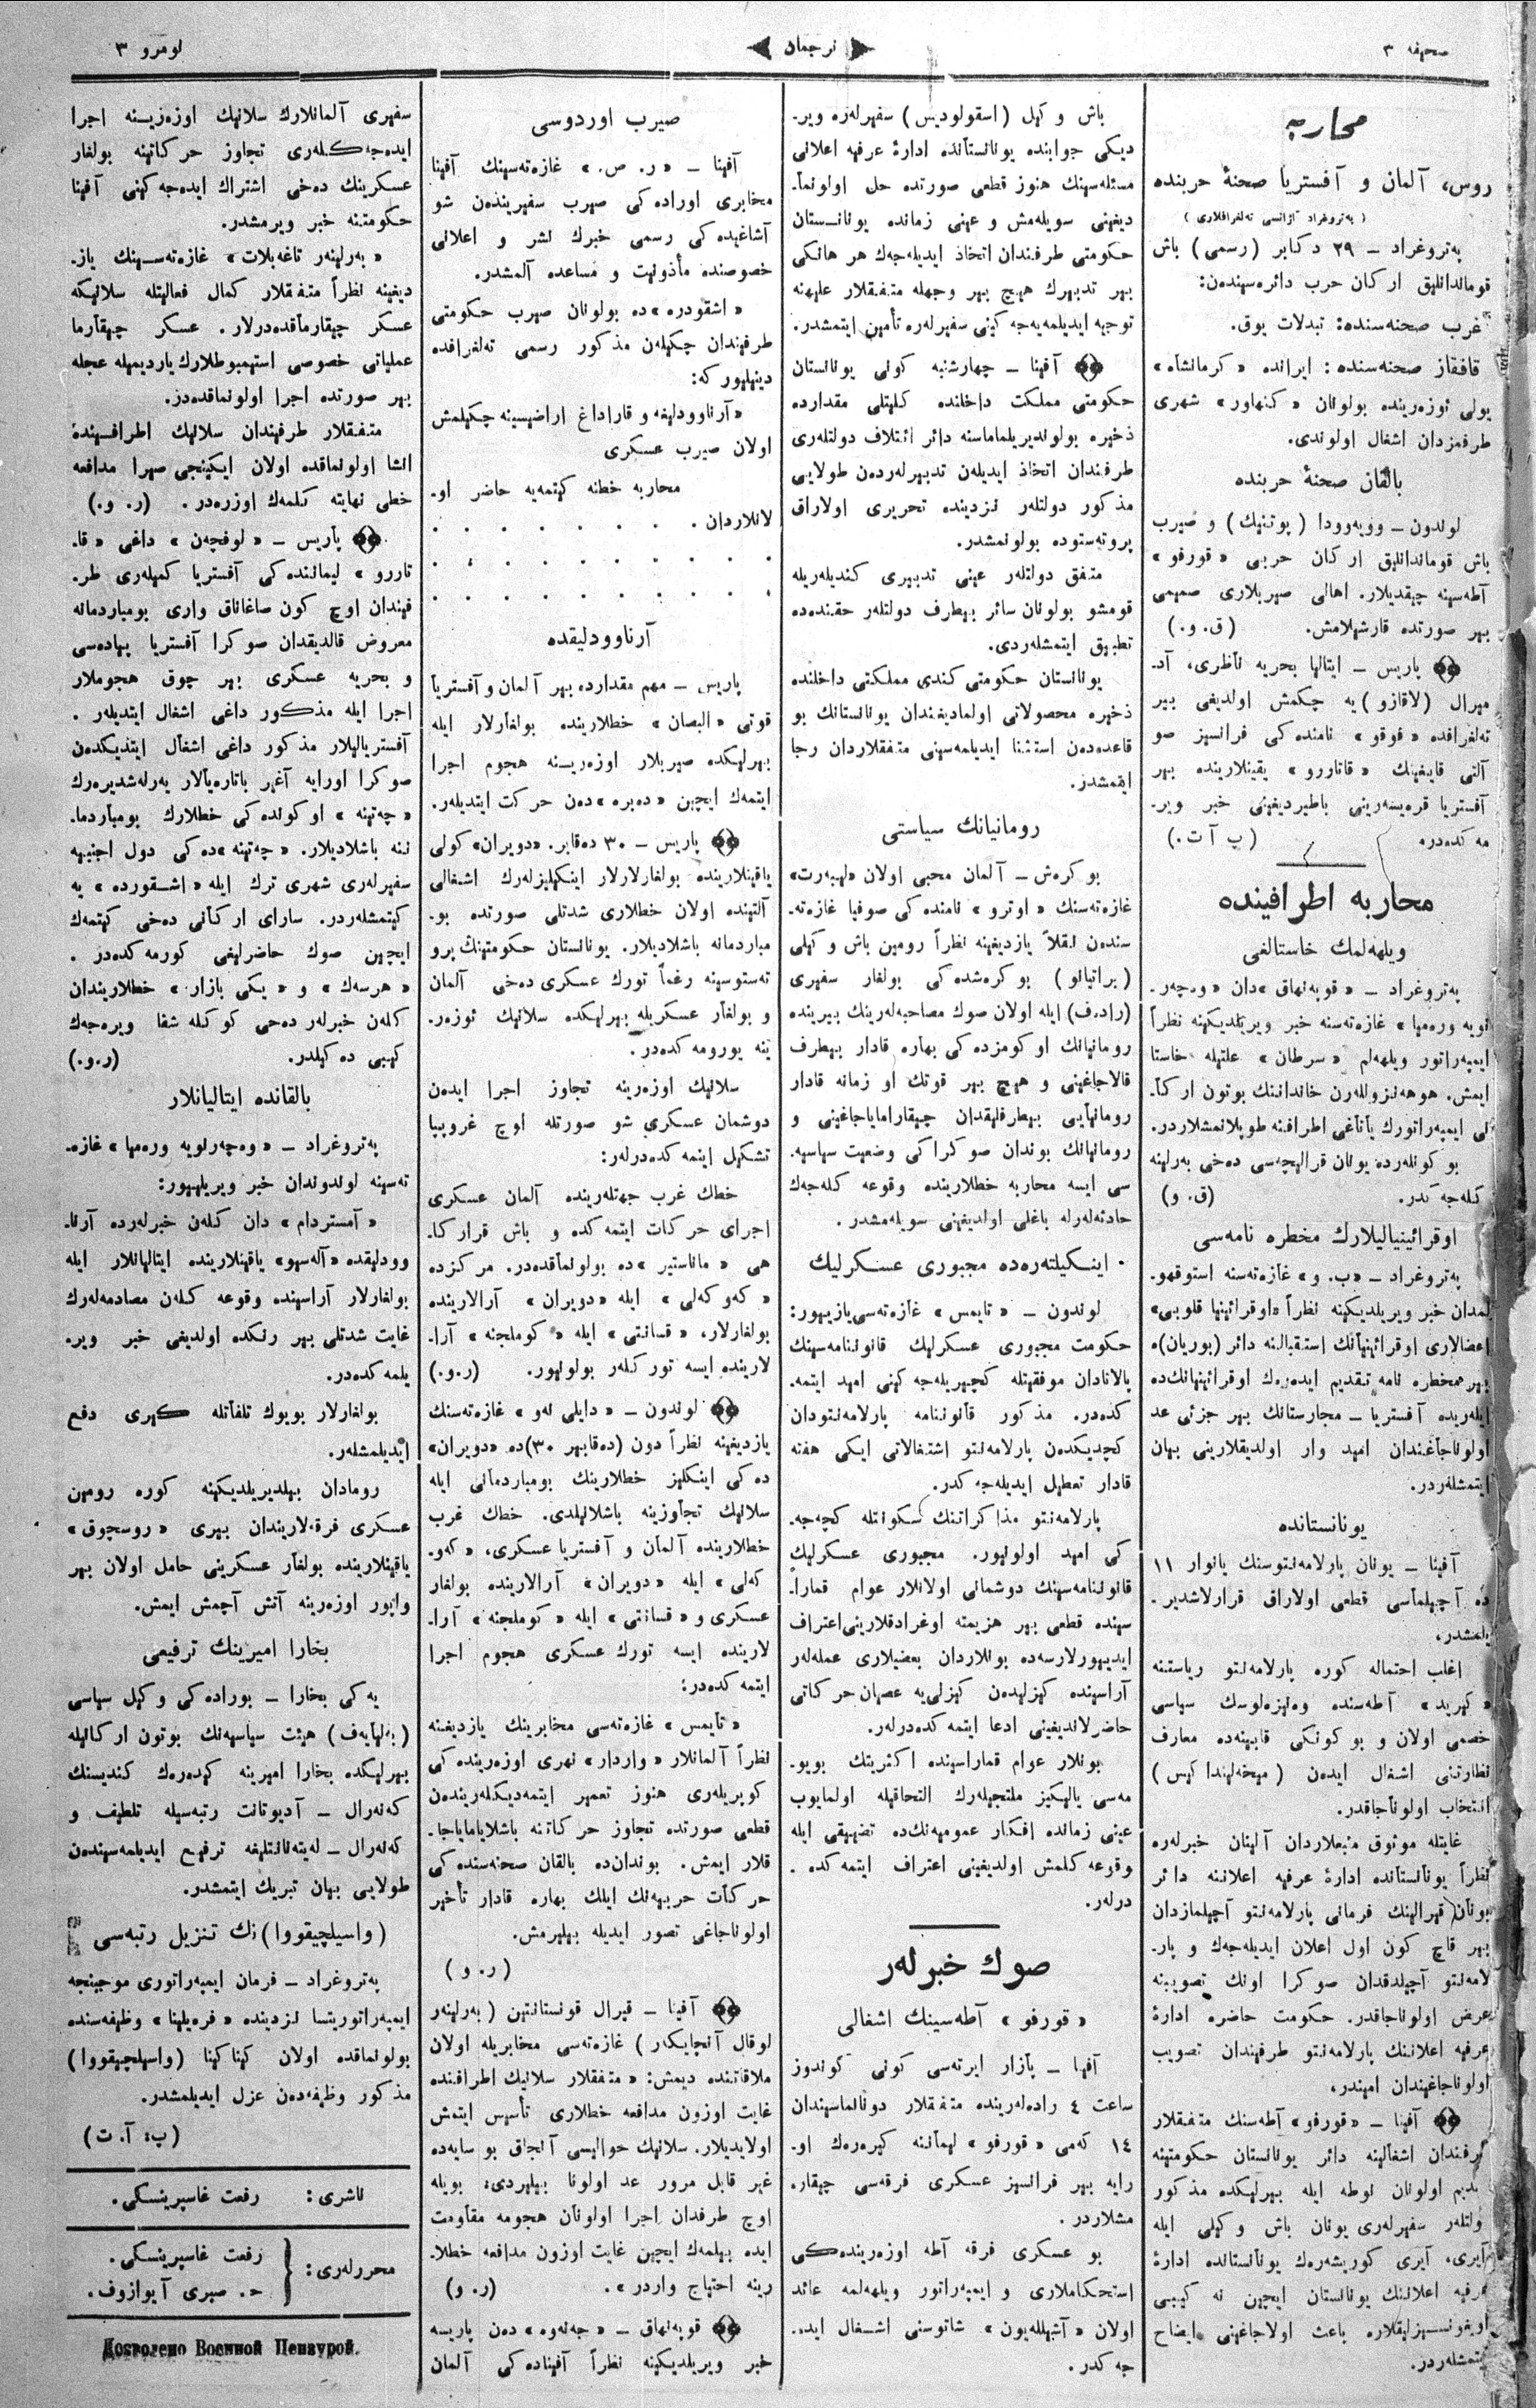 صحیفه ٣
ترجمان
نومرو ٣
محاربه
روس، آلمان و آفستریا صحنهٔ حربنده
( پەتروغراد آژانسی تەلغرافلاری )
پەتروغراد ــ ٢٩ دکابر (رسمی) باش
قوماندانلیق ارکان حرب دائرەسیندن:
غرب صحنەسنده: تبدلات یوق.
قافقاز صحنەسنده: ایرانده «کرمانشاه»
یولی ئوزەرینده بولونان «کنهاور» شهری
طرفمزدان اشغال اولوندی.
بالقان صحنهٔ حربنده
لوندون ــ وویەوودا (پوتنیك) و صیرب
باش قوماندانلیق ارکان حربی «قورفو»
آطەسینه چیقدیلار. اهالی صیربلاری صمیمی
بیر صورتده قارشیلامش. (ق. و.)
پاریس ــ ایتالیا بحریه ناظری، آد-
میرال (لاقازو)یه چکمش اولدیغی بیر
تەلغرافده «فوقو» نامنده کی فرانسیز صو
آلتی قایغینك «قاتاررو» یقینلارینده بیر
آفستریا قرەیسەرینی باطیردیغینی خبر ویر-
مه کدەدر. (پ آ ت.)
محاربه اطرافینده
ویلهەلمك خاستالغی
پەتروغراد ــ «قوپەنهاق»دان «وەچەر-
نویه ورەمیا» غازەتەسنه خبر ویریلدیکینه نظراً
ایمپەراتور ویلهەلم «سرطان» علتیله خاستا
ایمش. هوهەنزوللەرن خانداننك بوتون ارکا-
نی ایمپەراتورك یاتاغی اطرافنه طوپلانمشلاردر.
بو کونلەرده یونان قرالیچەسی دەخی بەرلینه
کلەجەکدر. (ق. و)
اوقرائینیالیلارك مخطره نامەسی
پەتروغراد ــ «ب. و» غازەتەسنه استوقهو-
لمدان خبر ویریلدیکینه نظراً «اوقرائینیا قلوبی»
اعضالاری اوقرائینیانك استقبالنه دائر (بوریان)ه
بیر مخطره نامه تقدیم ایدەرەك اوقرائینیانك ده
ایلەریده آفستریا ــ مجارستانك بیر جزئی عد
اولوناجاغندان امید وار اولدیقلارینی بیان
ایتمشلەردر.
یونانستانده
آفینا ــ یونان پارلامەنتوسنك یانوار ١١
ده آچیلماسی قطعی اولاراق قرارلاشدیر-
یلمشدر.
اغلب احتماله کوره پارلامەنتو ریاستنه
«کرید» آطەسنده وەنیزەلوسك سیاسی
خصمی اولان و بو کونکی قابینەده معارف
نظارتنی اشغال ایدەن (میخەلیداکیس)
انتخاب اولوناجاقدر.
غایتله موثوق منبعلاردان آلینان خبرلەره
نظراً یونانستانده ادارهٔ عرفیه اعلاننه دائر
یونان قیرالینك فرمانی پارلامەنتو آچیلمازدان
بیر قاچ کون اول اعلان ایدیلەجەك و پار-
لامەنتو آچیلدقدان صوکرا اونك تصویبنه
عرض اولوناجاقدر. حکومت حاضره ادارهٔ
عرفیه اعلاننك پارلامەنتو طرفیندان تصویب
اولوناجاغیندان امیندر.
آفینا ــ «قورفو» آطەسنك متفقلار
طرفیندان اشغالینه دائر یونانستان حکومتینه
تقدیم اولونان نوطه ایله بیرلیکده مذکور
دولتلەر سفیرلەری یونان باش وکیلی ایله
آیری، آیری کوریشەرەك یونانستانده ادارهٔ
عرفیه اعلاننك یونانستان ایچین نه کیبی
اویغونسیزلیقلاره باعث اولاجاغینی ایضاح
ایتمشلەردر.
باش وکیل (اسقولودیس) سفیرلەره ویر-
دیکی جوابنده یونانستانده ادارهٔ عرفیه اعلانی
مسئلەسینك هنوز قطعی صورتده حل اولونما-
دیغینی سویلەمش و عینی زمانده یونانستان
حکومتی طرفندان اتخاذ ایدیلەجەك هر هانکی
بیر تدبیرك هیچ بیر وجهله متفقلار علیهنه
توجیه ایدیلمەیەجەکینی سفیرلەره تأمین ایتمشدر.
آفینا ــ چهارشنبه کونی یونانستان
حکومتی مملکت داخلنده کلیتلی مقدارده
ذخیره بولوندیریلماماسنه دائر ائتلاف دولتلەری
طرفندان اتخاذ ایدیلەن تدبیرلەردەن طولایی
مذکور دولتلەر نزدینده تحریری اولاراق
پروتەستوده بولونمشدر.
متفق دولتلەر عینی تدبیری کندیلەریله
قومشو بولونان سائر بیطرف دولتلەر حقندەده
تطبیق ایتمشلەردی.
یونانستان حکومتی کندی مملکتی داخلنده
ذخیره محصولاتی اولمادیغندان یونانستانك بو
قاعدەدەن استثنا ایدیلمەسینی متفقلاردان رجا
ایتمشدر.
رومانیانك سیاستی
بوکرەش ــ آلمان محبی اولان «لیبەرت»
غازەتەسنك «اوترو» نامنده کی صوفیا غازەتە-
سندەن نقلاً یازدیغینه نظراً رومین باش وکیلی
(براتیانو) بوکرەشده کی بولغار سفیری
(رادەف) ایله اولان صوك مصاحبەلەرینك بیرینده
رومانیانك اوکومزده کی بهاره قادار بیطرف
قالاجاغینی و هیچ بیر قوتك او زمانه قادار
رومانیایی بیطرفلیقدان چیقارامایاجاغینی و
رومانیانك بوندان صوکراکی وضعیت سیاسیه-
سی ایسه محاربه خطلارینده وقوعه کلەجەك
حادثەلەرله باغلی اولدیغینی سویلەمشدر.
اینکیلتەرەده مجبوری عسکرلیك
لوندون ــ «تایمس» غازەتەسی یازییور:
حکومت مجبوری عسکرلیك قانوننامەسینك
پالاتادان موفقیتله کچیریلەجەکینی امید ایتمه-
کدەدر. مذکور قانوننامه پارلامەنتودان
کچدیکدەن پارلامەنتو اشتغالاتی ایکی هفته
قادار تعطیل ایدیلەجەکدر.
پارلامەنتو مذاکراتنك سکونتله کچەجە-
کی امید اولونیور. مجبوری عسکرلیك
قانوننامەسینك دوشمانی اولانلار عوام قمارا-
سینده قطعی بیر هزیمته اوغرادقلارینی اعتراف
ایدییورلارسەده بونلاردان بعضیلاری عملەلەر
آراسینده کیزلیدەن کیزلییه عصیان حرکاتی
حاضرلاندیغینی ادعا ایتمه کدەدرلەر.
بونلار عوام قماراسینده اکثریتك بویو-
مەسی یالیکیز ملتجیلەرك التحاقیله اولمایوب
عینی زمانده افکار عمومیەنكده تضییقی ایله
وقوعه کلمش اولدیغینی اعتراف ایتمه کده-
درلەر.
صوك خبرلەر
«قورفو» آطەسینك اشغالی
آفینا ــ بازار ایرتەسی کونی کوندوز
ساعت ٤ رادەلەرینده متفقلار دونانماسیندان
١٤ کەمی «قورفو» لیماننه کیرەرەك او-
رایه بیر فرانسیز عسکری فرقەسی چیقار-
مشلاردر.
بو عسکری فرقه آطه اوزەریندەکی
استحکاملاری و ایمپەراتور ویلهەلمه عائد
اولان «آشیللەیون» شاتوسنی اشغال ایده-
جەکدر.
صیرب اوردوسی
آفینا ــ «ر. ص.» غازەتەسینك آفینا
مخابری اوراده کی صیرب سفیریندەن شو
آشاغیده کی رسمی خبرك نشر و اعلانی
خصوصنده مأذونیت و مساعده آلمشدر.
«اشقودره»ده بولونان صیرب حکومتی
طرفیندان چکیلەن مذکور رسمی تەلغرافده
دینیلیور که:
«آرناوودلیغه و قاراداغ اراضیسینه چکیلمش
اولان صیرب عسکری
محاربه خطنه کیتمەیه حاضر او-
لانلاردان . . . . . . . .
. . . . . . . . . .
. . . . . . . . . .
آرناوودلیقده
پاریس ــ مهم مقدارده بیر آلمان و آفستریا
قوتی «البصان» خطلارینده بولغارلار ایله
بیرلیکده صیربلار اوزەرینه هجوم اجرا
ایتمەك ایچین «دەبره»دەن حرکت ایتدیلەر.
پاریس ــ ٣٠ دەقابر. «دویران» کولی
یاقینلارینده بولغارلارلار اینکیلیزلەرك اشغالی
آلتینده اولان خطلاری شدتلی صورتده بو-
مباردمانه باشلادیلار. یونانستان حکومتینك پرو
تەستوسینه رغماً تورك عسکری دەخی آلمان
و بولغار عسکریله بیرلیکده سلانیك ئوزەر-
ینه یورومه کدەدر.
سلانیك اوزەرینه تجاوز اجرا ایدەن
دوشمان عسکری شو صورتله اوچ غروپپا
تشکیل ایتمه کدەدرلەر:
خطك غرب جهتلەرینده آلمان عسکری
اجرای حرکات ایتمه کده و باش قرارکا-
هی «ماناستیر»ده بولونماقدەدر. مرکزده
«کەوکەلی» ایله «دویران» آرالارینده
بولغارلار، «قسانتی» ایله «کوملجنه» آرا-
لارینده ایسه تورکلەر بولونیور. (ر.و.)
لوندون ــ «دایلی نەو» غازەتەسنك
یازدیغینه نظراً دون (دەقابیر ٣٠)ده «دویران»
ده کی اینکلیز خطلارینك بومباردمانی ایله
سلانیك تجاوزینه باشلانیلدی. خطك غرب
خطلارینده آلمان و آفستریا عسکری، «کەو-
کەلی» ایله «دویران» آرالارینده بولغار
عسکری و «قسانتی» ایله «کوملجنه» آرا-
لارینده ایسه تورك عسکری هجوم اجرا
ایتمه کدەدر.
«تایمس» غازەتەسی مخابرینك یازدیغینه
نظراً آلمانلار «واردار» نهری اوزەرینده کی
کوپریلەری هنوز تعمیر ایتمەدیکلەریندەن
قطعی صورتده تجاوز حرکاتنه باشلایامایاجا-
قلار ایمش. بوندانده بالقان صحنەسنده کی
حرکات حربیەنك ایلك بهاره قادار تأخیر
اولوناجاغی تصور ایدیله بیلیرمش.
(ر. و)
آفینا ــ قیرال قونستانتین (بەرلینەر
لوقال آنچایگەر) غازەتەسی مخابریله اولان
ملاقاتنده دیمش: «متفقلار سلانیك اطرافنده
غایت اوزون مدافعه خطلاری تأسیس ایتمش
اولایدیلار. سلانیك حوالیسی آنجاق بو سایەده
غیر قابل مرور عد اولونا بیلیردی. بویله
اوچ طرفدان اجرا اولونان هجومه مقاومت
ایده بیلمەك ایچین غایت اوزون مدافعه خطلا-
رینه احتیاج واردر». (ر. و)
قوپەنهاق ــ «جەنەوه» دەن پاریسه
خبر ویریلدیکینه نظراً آفیناده کی آلمان
سفیری آلمانلارك سلانیك اوزەرینه اجرا
ایدەجەکلەری تجاوز حرکاتینه بولغار
عسکرینك دەخی اشتراك ایدەجەکینی آفینا
حکومتنه خبر ویرمشدر.
«بەرلینەر تاغەبلات» غازەتەسینك یاز-
دیغینه نظراً متفقلار کمال فعالیتله سلانیکه
عسکر چیقارماقدەدرلار. عسکر چیقارما
عملیاتی خصوصی استیمبوطلارك یاردیمیله عجله
بیر صورتده اجرا اولونماقدەدر.
متفقلار طرفیندان سلانیك اطرافینده
انشا اولونماقده اولان ایکینجی صیرا مدافعه
خطی نهایته کلمەك اوزرەدر. (ر. و.)
پاریس ــ «لوفچەن» داغی «قا-
تاررو» لیماننده کی آفستریا کمیلەری طر-
فیندان اوچ کون صاغاناق واری بومباردمانه
معروض قالدیقدان صوکرا آفستریا پیادەسی
و بحریه عسکری بیر چوق هجوملار
اجرا ایله مذکور داغی اشغال ایتدیلەر.
آفستریالیلار مذکور داغی اشغال ایتدیکدەن
صوکرا اورایه آغیر باتارەیالار یەرلەشدیرەرك
«چەتینه» اوکونده کی خطلارك بومباردما-
ننه باشلادیلار. «چەتینه»ده کی دول اجنبیه
سفیرلەری شهری ترك ایله «اشقودره» یه
کیتمشلەردر. سارای ارکانی دەخی کیتمەك
ایچین صوك حاضرلیغی کورمه کدەدر.
«هرسەك» و «یکی بازار» خطلاریندان
کلەن خبرلەر دەخی کوکله شفا ویرەجەك
کیبی دەکیلدر. (ر.و.)
بالقانده ایتالیانلار
پەتروغراد ــ «وەچەرنویه ورەمیا» غازە-
تەسینه لوندوندان خبر ویریلییور:
«آمستردام» دان کلەن خبرلەرده آرنا-
وودلیقده «آلەسیو» یاقینلارینده ایتالیانلار ایله
بولغارلار آراسینده وقوعه کلەن مصادمەلەرك
غایت شدتلی بیر رنکده اولدیغی خبر ویر-
یلمه کدەدر.
بولغارلار بویوك تلفاتله کیری دفع
ایدیلمشلەر.
رومادان بیلدیریلدیکینه کوره رومین
عسکری فرقەلاریندان بیری «روسچوق»
یاقینلارینده بولغار عسکرینی حامل اولان بیر
واپور اوزەرینه آتش آچمش ایمش.
بخارا امیرینك ترفیعی
یەکی بخارا ــ بوراده کی وکیل سیاسی
(بەلیایەف) هیئت سیاسیەنك بوتون ارکانیله
بیرلیکده بخارا امیرینه کیدەرەك کندیسنك
کەنەرال ــ آدیوتانت رتبەسیله تلطیف و
کەنەرال ــ لەیتەنانتلیغه ترفیع ایدیلمەسیندەن
طولایی بیان تبریك ایتمشدر.
(واسیلچیقووا)نك تنزیل رتبەسی
پەتروغراد ــ فرمان ایمپەراتوری موجبنجه
ایمپەراتوریتسا نزدینده «فرەیلینا» وظیفەسنده
بولونماقده اولان کیناکینا (واسیلچیقووا)
مذکور وظیفەدەن عزل ایدیلمشدر.
(پ. آ. ت)
ناشری: رفعت غاسپرینسکی.
محررلەری: { رفعت غاسپرینسکی.
ح. صبری آیوازوف.
Дозволено Военной Цензурой.